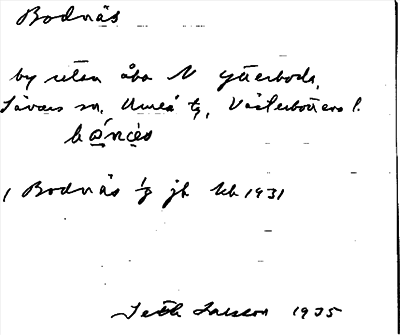 Bodnäs
by utan åbo N Ytterboda,
Sävars sn, Umeå tg, Västerbottens l.
Bodnäs 1/3 jb 1931
Seth Larsson 1935